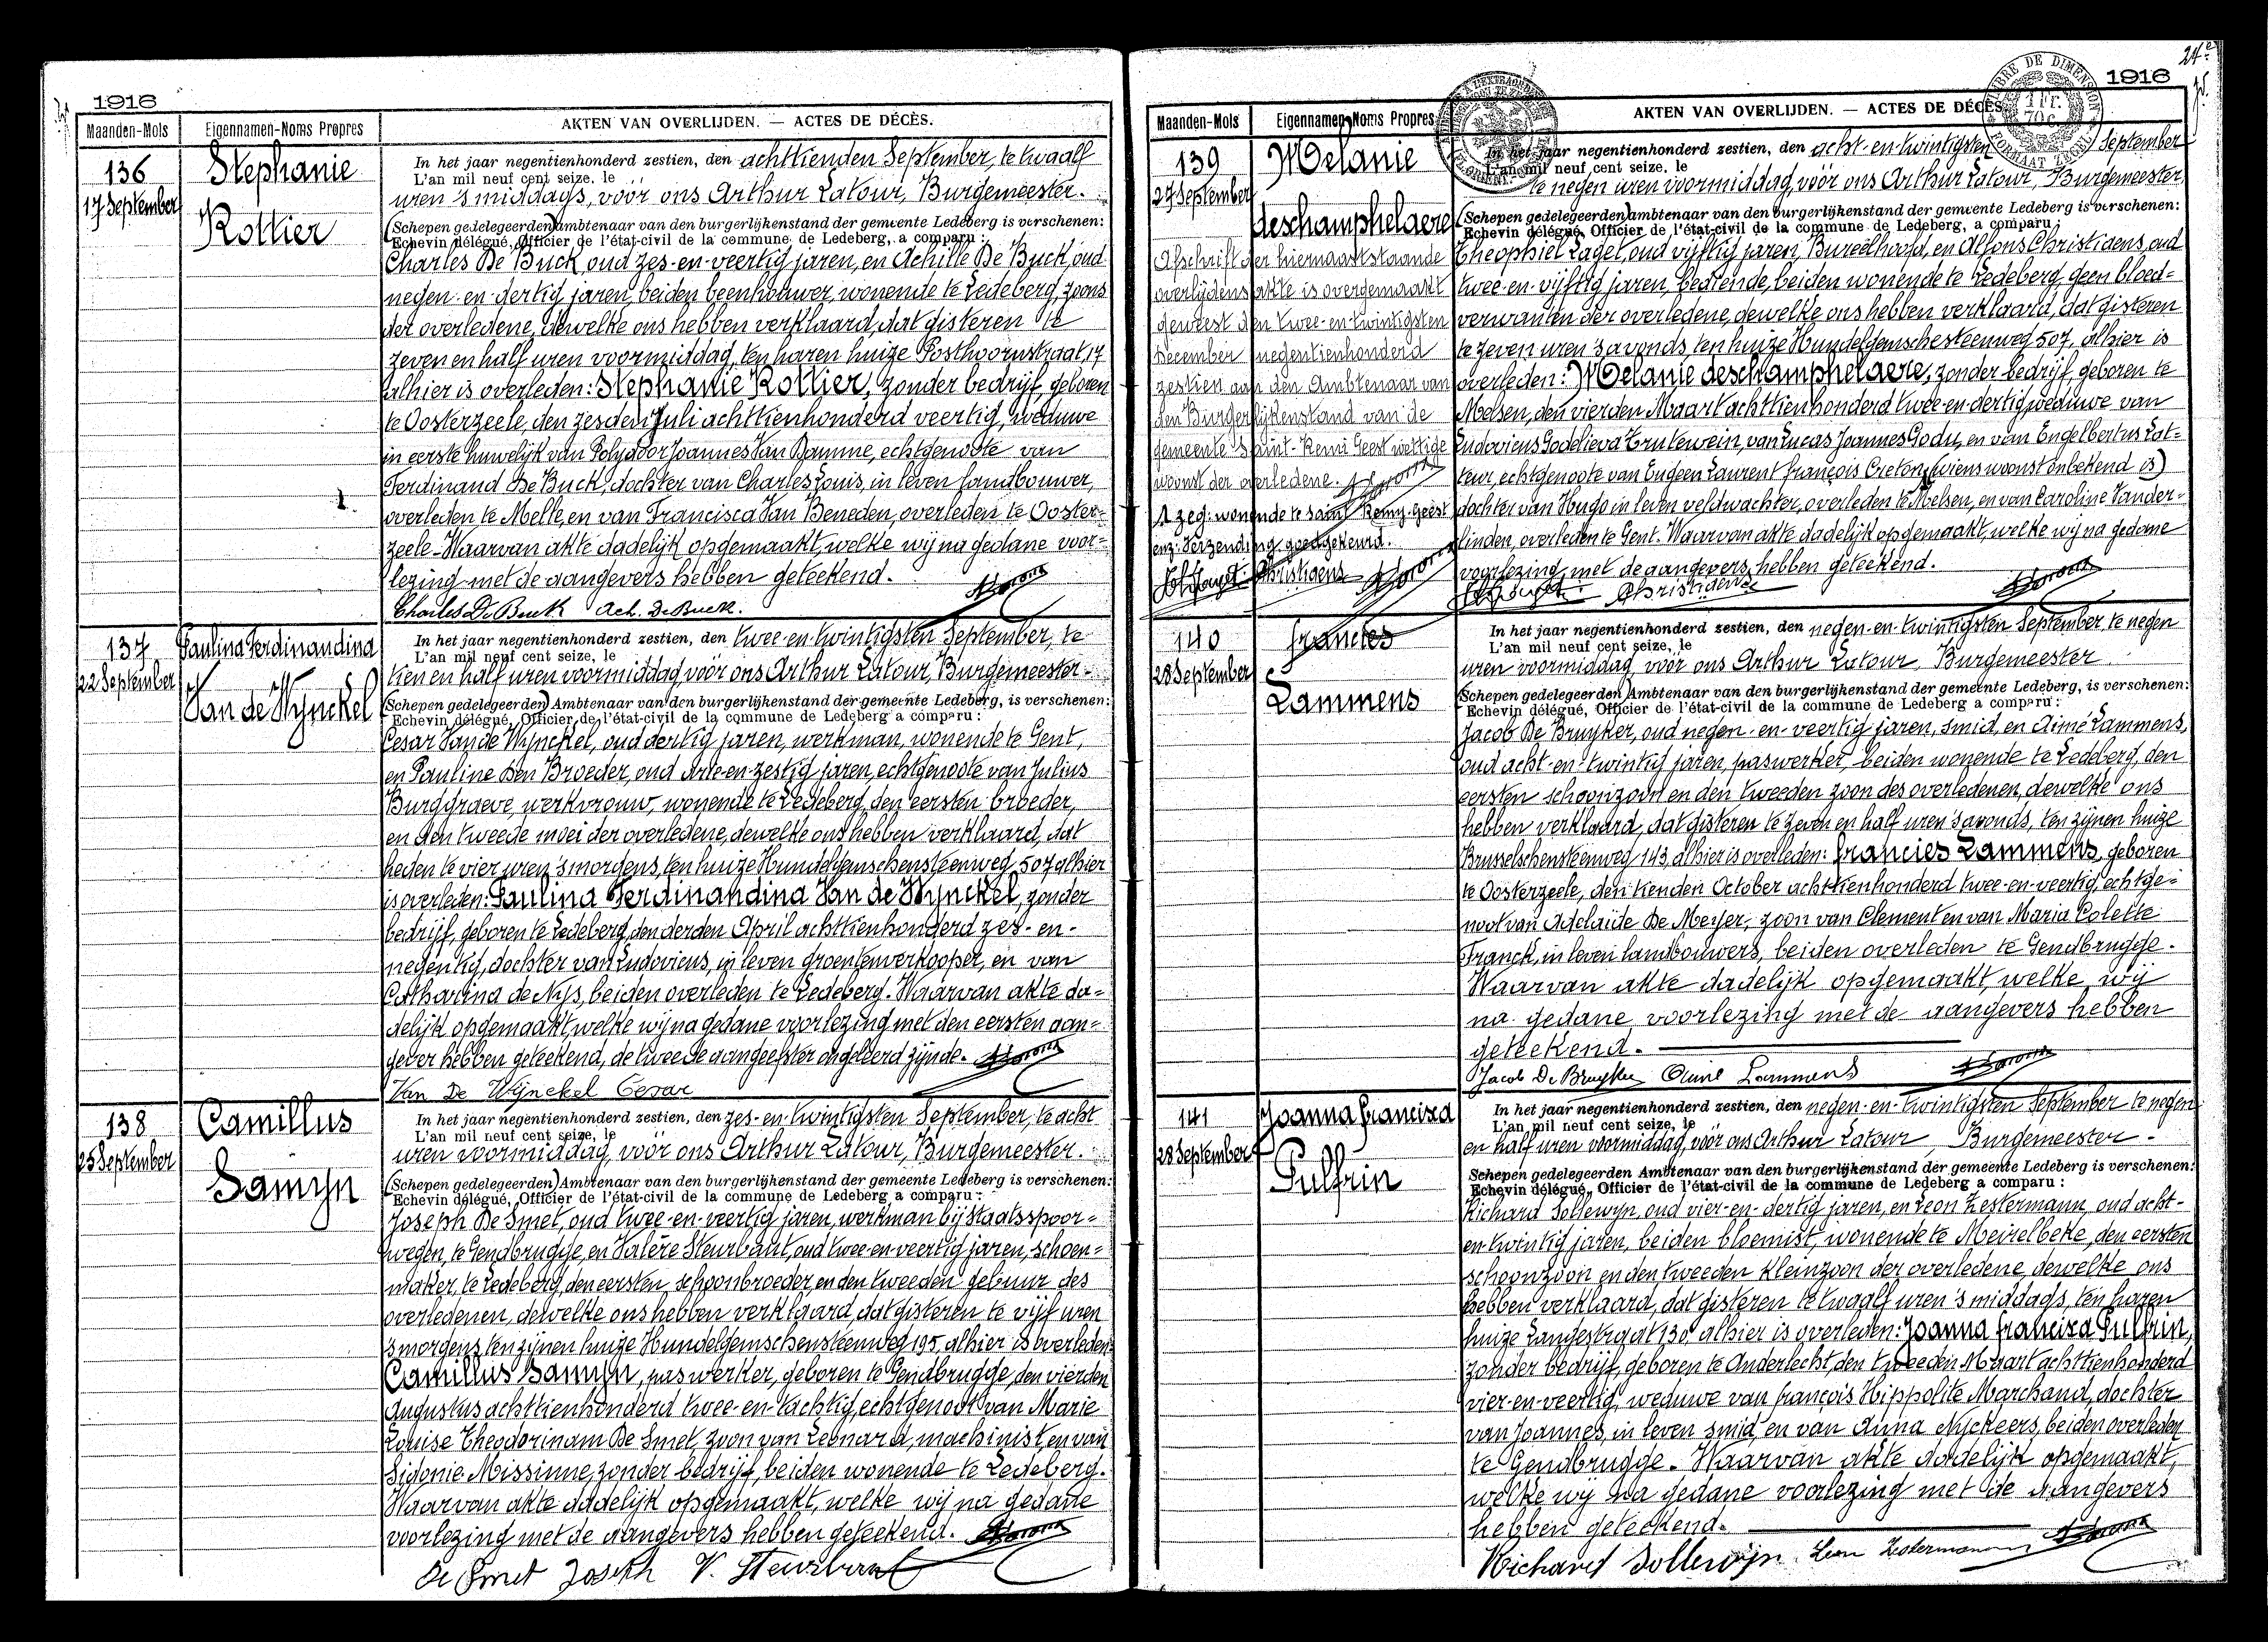 1916
Maanden-Mois Eigennamen-Noms Propres AKTEN VAN OVERLIJDEN. — ACTES DE DÉCÈS.
136
17 September
Stephanie
Rottier
In het jaar negentienhonderd zestien, den achttienden September, te twaalf
L'an mil neuf cent seize, le
uren 's middags, vóór ons Arthur Latour, Burgemeester.
(Schepen gedelegeerden) ambtenaar van den burgerlijkenstand der gemeente Ledeberg is verschenen:
Echevin délégué, Officier de l'état-civil de la commune de Ledeberg, a comparu:
Charles De Buck, oud zes-en-veertig jaren, en Achille De Buck, oud
negen-en-dertig jaren, beiden beenhouwer, wonende te Ledeberg, zoons
der overledene, dewelke ons hebben verklaard, dat gisteren te
zeven en half uren voormiddag, ten haren huize Posthoornstraat, 17
alhier is overleden: Stephanie Rottier, zonder bedrijf, geboren
te Oosterzeele, den zesden Juli achttienhonderd veertig, weduwe
in eerste huwelijk van Polydoor Joannes Van Damme, echtgenoote van
Ferdinand De Buck, dochter van Charles Louis, in leven landbouwer,
overleden te Melle, en van Francisca Van Beneden, overleden te Ooster-
zeele. Waarvan akte dadelijk opgemaakt, welke wij na gedane voor-
lezing met de aangevers hebben geteekend.
Charles De Buck Ach. De Buck.
137
22 September
Paulina Ferdinandina
Van de Wynckel
In het jaar negentienhonderd zestien, den twee-en-twintigsten September, te
L'an mil neuf cent seize, le
tien en half uren voormiddag vóór ons Arthur Latour, Burgemeester.
(Schepen gedelegeerden) Ambtenaar van den burgerlijkenstand der gemeente Ledeberg, is verschenen:
Echevin délégué, Officier de l'état-civil de la commune de Ledeberg a comparu:
Cesar Van de Wynckel, oud dertig jaren, werkman, wonende te Gent,
en Pauline Den Broeder, oud drie-en-zestig jaren, echtgenoote van Julius
Burggraeve, werkvrouw, wonende te Ledeberg, den eersten broeder,
en den tweede moei der overledene, dewelke ons hebben verklaard, dat
heden te vier uren 's morgens, ten huize Hundelgemschensteenweg, 507 alhier
is overleden: Paulina Ferdinandina Van de Wynckel, zonder
bedrijf, geboren te Ledeberg, den derden April achttienhonderd zes-en-
negentig, dochter van Ludovicus, in leven groentenverkooper, en van
Catharina de Nys, beiden overleden te Ledeberg. Waarvan akte da-
delijk opgemaakt, welke wij na gedane voorlezing met den eersten aan-
gever hebben geteekend, de tweede aangeefster ongeleerd zijnde.
Van De Wynckel Cesar
138
25 September
Camillus
Samyn
In het jaar negentienhonderd zestien, den zes-en-twintigsten September, te acht
L'an mil neuf cent seize, le
uren voormiddag, vóór ons Arthur Latour, Burgemeester.
(Schepen gedelegeerden) Ambtenaar van den burgerlijkenstand der gemeente Ledeberg is verschenen:
Echevin délégué, Officier de l'état-civil de la commune de Ledeberg a comparu:
Joseph De Smet, oud twee-en-veertig jaren, werkman bij staatsspoor-
wegen, te Gendbrugge, en Valère Steurbaut, oud twee-en-veertig jaren, schoen-
maker, te Ledeberg, den eersten schoonbroeder, en den tweeden gebuur des
overledenen, dewelke ons hebben verklaard, dat gisteren te vijf uren
's morgens ten zijnen huize Hundelgemschensteenweg 195, alhier is overleden:
Camillus Samyn, paswerker, geboren te Gendbrugge, den vierden
Augustus achttienhonderd twee-en-tachtig, echtgenoot van Marie
Louise Theodorinam De Smet, zoon van Leonard, machinist, en van
Sidonie Missinne, zonder bedrijf, beiden wonende te Ledeberg.
Waarvan akte dadelijk opgemaakt, welke wij na gedane
voorlezing met de aangevers hebben geteekend.
De Smet Joseph V. Steurbaut
24e
1916
Maanden-Mois Eigennamen-Noms Propres AKTEN VAN OVERLIJDEN. — ACTES DE DÉCÈS.
139
27 September
Melanie
deschamphelaere
Afschrift der hiernaastitaande
overlijdens akte is overgemaakt
geweest den twee-en-twintigsten
December negentienhonderd
zestien aan den Ambtenaar van
den Burgerlijkenstand van de
gemeente Saint-Remi Geest wettige
woonst der overledene.
1 zeg: wonende te Saint Remy-Geest
enz. Verzending goedgekeurd.
Christiaens
In het jaar negentienhonderd zestien, den acht-en-twintigsten September
L'an mil neuf cent seize, le
te negen uren voormiddag, vóór ons Arthur Latour, Burgemeester,
(Schepen gedelegeerden) ambtenaar van den burgerlijkenstand der gemeente Ledeberg is verschenen:
Echevin délégué, Officier de l'état-civil de la commune de Ledeberg, a comparu:
Theophiel Laget, oud vijftig jaren, Bureelhoofd, en Alfons Christiaens, oud
twee-en-vijftig jaren, bediende, beiden wonende te Ledeberg, geen bloed-
verwanten der overledene, dewelke ons hebben verklaard, dat gisteren
te zeven uren 's avonds, ten huize Hundelgemschesteenweg 507, alhier is
overleden: Melanie deschamphelaere, zonder bedrijf, geboren te
Melsen, den vierden Maart achttienhonderd twee-en-dertig, weduwe van
Ludovicus Godelieva Erutewein, van Lucas Joannes Godu, en van Engelbertus Lat-
teur, echtgenoote van Eugeen Laurent françois Creton, (wiens woonst onbekend is)
dochter van Hugo in leven veldwachter, overleden te Melsen, en van Caroline Vander-
linden, overleden te Gent. Waarvan akte dadelijk opgemaakt, welke wij na gedane
voorlezing, met de aangevers hebben geteekend.
Christiaens
140
28 September
francies
Lammens
In het jaar negentienhonderd zestien, den negen-en-twintigsten September, te negen
L'an mil neuf cent seize, le
uren voormiddag vóór ons Arthur Latour, Burgemeester
(Schepen gedelegeerden) Ambtenaar van den burgerlijkenstand der gemeente Ledeberg, is verschenen:
Echevin délégué, Officier de l'état-civil de la commune de Ledeberg a comparu:
Jacob De Bruyker, oud negen-en-veertig jaren, smid, en Aimé Lammens,
oud acht-en-twintig jaren, paswerker, beiden wonende te Ledeberg, den
eersten schoonzoon en den tweeden zoon des overledenen, dewelke ons
hebben verklaard, dat gisteren te zeven en half uren 's avonds, ten zijnen huize
Brusselschensteenweg 143, alhier is overleden: francies Lammens, geboren
te Oosterzeele, den tienden October achttienhonderd twee-en-veertig, echtge-
noot van Adelaïde De Meyer, zoon van Clement en van Maria Colette
Franck, in leven landbouwers, beiden overleden te Gendbrugge.
Waarvan akte dadelijk opgemaakt, welke wij
na gedane voorlezing met de aangevers hebben
geteekend.
Jacob De Bruyker Aimé Lammens
141
28 September
Joanna francisca
Pulfrin
In het jaar negentienhonderd zestien, den negen-en-twintigsten September te negen
L'an mil neuf cent seize, le
en half uren voormiddag, vóór ons Arthur Latour, Burgemeester.
Schepen gedelegeerden Ambtenaar van den burgerlijkenstand der gemeente Ledeberg is verschenen:
Echevin délégué, Officier de l'état-civil de la commune de Ledeberg a comparu:
Richard Sollewyn, oud vier-en-dertig jaren, en Leon Zestermann, oud acht-
en-twintig jaren, beiden bloemist, wonende te Meirelbeke, den eersten
schoonzoon en den tweeden kleinzoon der overledene, dewelke ons
hebben verklaard, dat gisteren te twaalf uren 's middags, ten haren
huize Langestraat 130 alhier is overleden: Joanna francisca Pulfrin,
zonder bedrijf, geboren te Anderlecht, den tweeden Maart achttienhonderd
vier-en-veertig, weduwe van françois Hippolite Marchand, dochter
van Joannes, in leven smid, en van Anna Nyckeers, beiden overleden
te Gendbrugge. Waarvan akte dadelijk opgemaakt,
welke wij na gedane voorlezing met de aangevers
hebben geteekend.
Richard Sollewijn Leon Zestermann